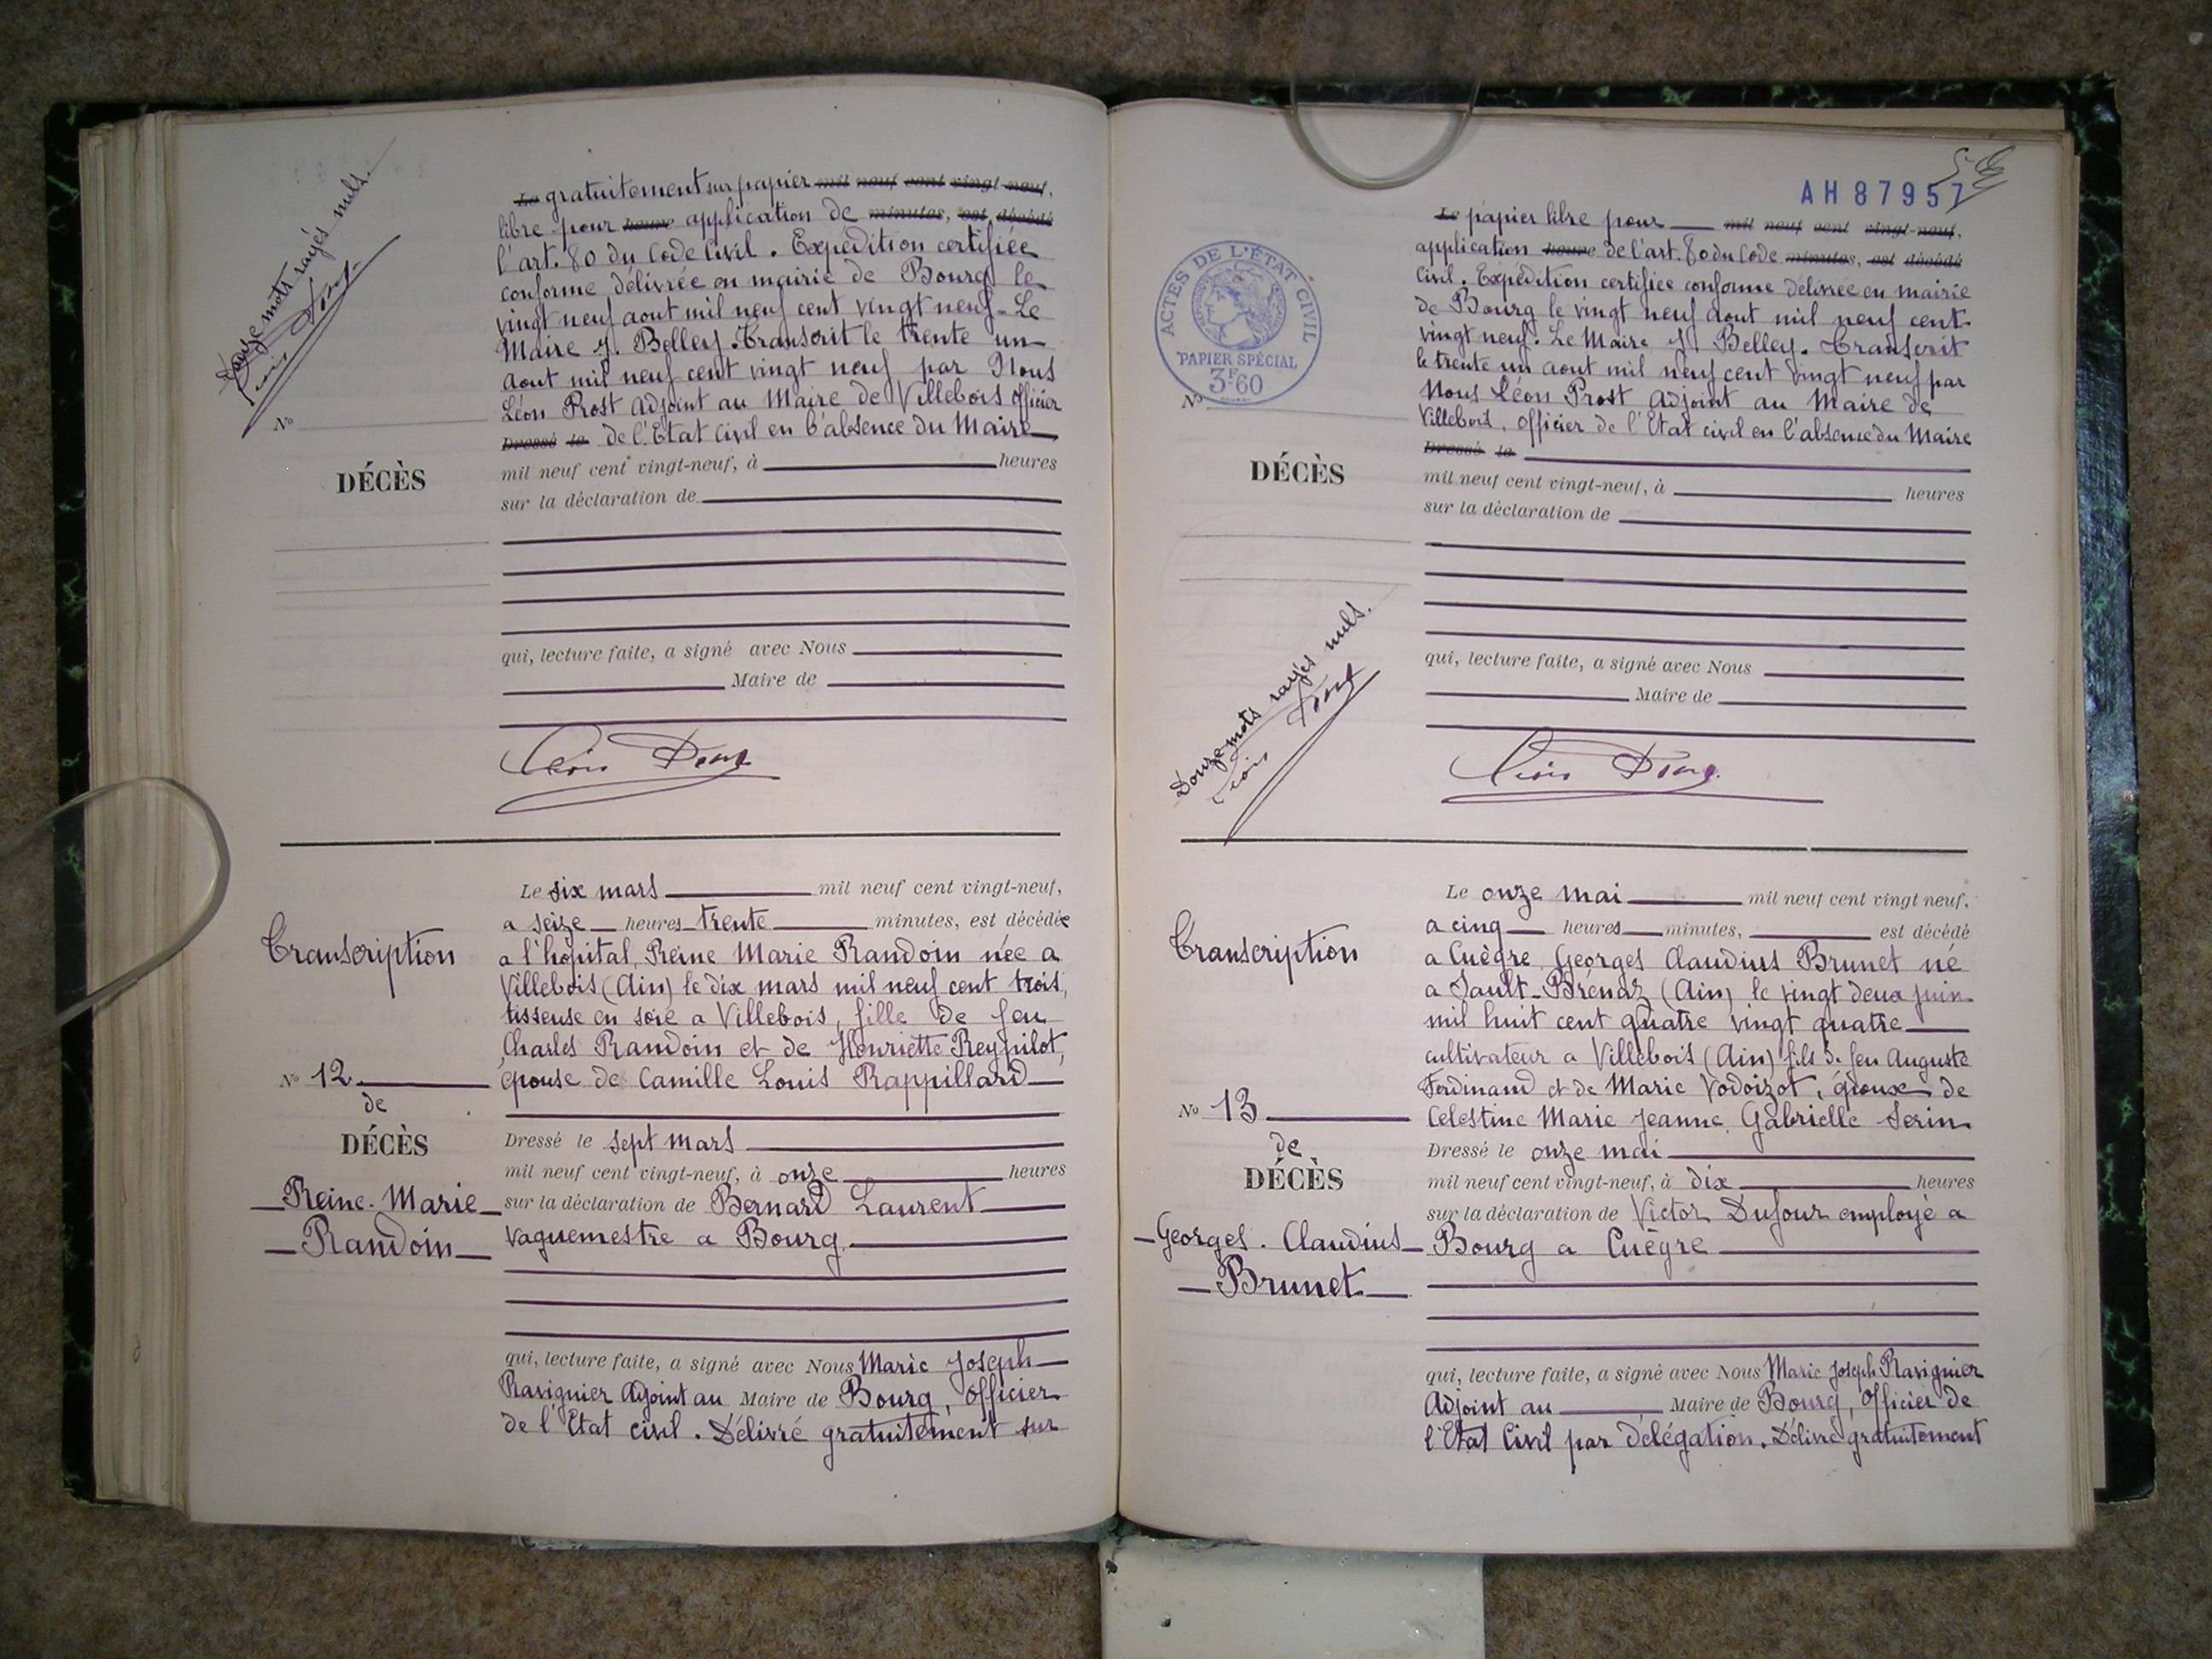 Le gratuitement sur papier mil neuf cent vingt-neuf,
libre pour heure application de minutes, est décédé
l'art. 80 du Code Civil. Expédition certifiée
conforme délivrée en mairie de Bourg le
vingt neuf aout mil neuf cent vingt neuf - Le
Maire J. Belley. Transcrit le trente un
aout mil neuf cent vingt neuf par Nous
Léon Prost adjoint au Maire de Villebois officier
Dressé le de l'Etat Civil en l'absence du Maire
mil neuf cent vingt-neuf, à heures
sur la déclaration de
qui, lecture faite, a signé avec Nous
Maire de
Douze mots rayés nuls.
Léon Prost
No
DÉCÈS
Léon Prost
Transcription
No 12
de
DÉCÈS
Reine-Marie
Randoin
Le six mars mil neuf cent vingt-neuf,
a seize heures trente minutes, est décédée
a l'hopital, Reine Marie Randoin née a
Villebois (Ain) le dix mars mil neuf cent trois,
tisseuse en soie a Villebois, fille de feu
Charles Randoin et de Henriette Reypilot,
épouse de Camille Louis Rappillard
Dressé le sept mars
mil neuf cent vingt-neuf, à onze heures
sur la déclaration de Bernard Laurent
vaguemestre a Bourg
qui, lecture faite, a signé avec Nous Marie Joseph
Ravignier Adjoint au Maire de Bourg, officier
de l'Etat civil. Délivré gratuitement sur
AH 87957
ACTES DE L'ÉTAT CIVIL
PAPIER SPÉCIAL
3F60
Le papier libre pour mil neuf cent vingt-neuf,
application heure de l'art. 80 du Code minutes, est décédé
Civil. Expédition certifiée conforme délivrée en mairie
de Bourg le vingt neuf aout mil neuf cent
vingt neuf. Le Maire J. Belley. Transcrit
le trente un aout mil neuf cent vingt neuf par
Nous Léon Prost adjoint au Maire de
Villebois, officier de l'Etat civil en l'absence du Maire
Dressé le
mil neuf cent vingt-neuf, à heures
sur la déclaration de
qui, lecture faite, a signé avec Nous
Maire de
No
DÉCÈS
Douze mots rayés nuls.
Léon Prost
Léon Prost
Transcription
No 13
de
DÉCÈS
Georges. Claudius
Brunet
Le onze mai mil neuf cent vingt neuf,
a cinq heures minutes, est décédé
a Cuègre, Georges Claudius Brunet né
a Sault-Brénaz (Ain) le vingt deux juin
mil huit cent quatre vingt quatre
cultivateur a Villebois (Ain) fils d. feu Auguste
Ferdinand et de Marie Vodoizot, époux de
Celestine Marie Jeanne Gabrielle Serin
Dressé le onze mai
mil neuf cent vingt-neuf, à dix heures
sur la déclaration de Victor Dufour employé a
Bourg a Cuègre
qui, lecture faite, a signé avec Nous Marie Joseph Ravignier
Adjoint au Maire de Bourg, Officier de
l'Etat Civil par délégation. Délivré gratuitement